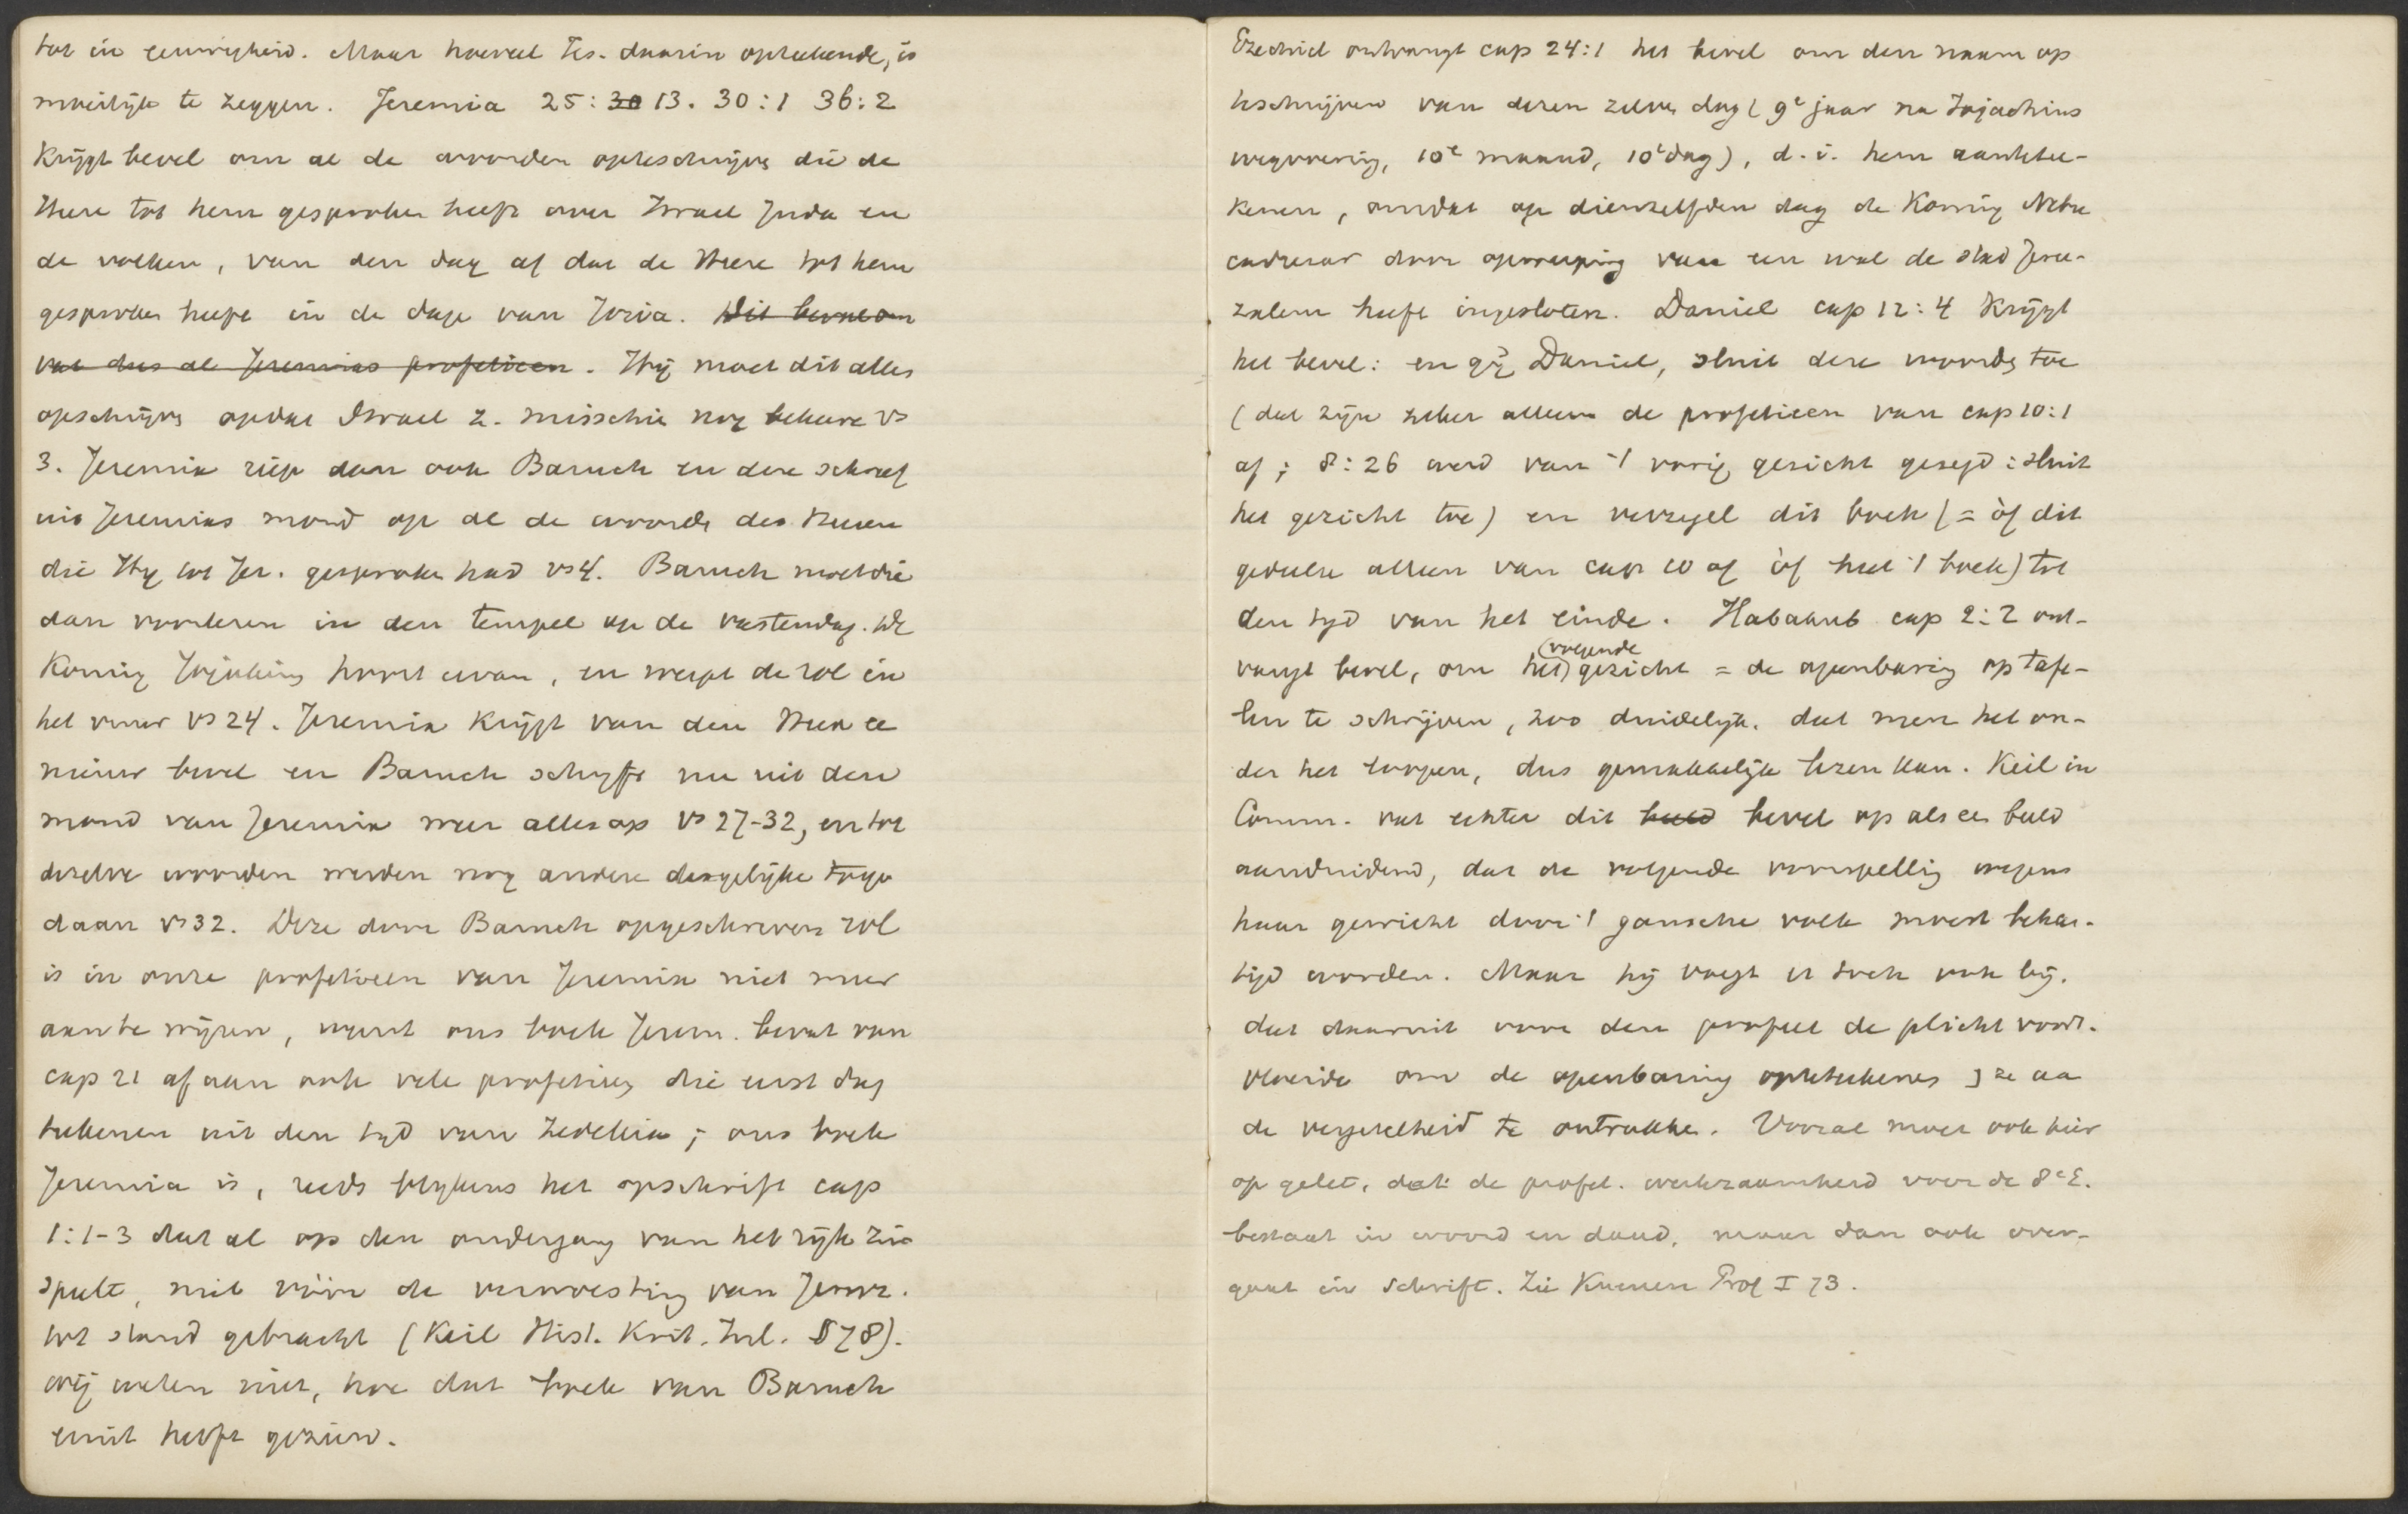 tot in eeuwigheid. Maar hoeveel Jes. daarin opteekende, is
moeilijk te zeggen. Jeremia 25: 30 13. 30:1 36:2
Krijgt bevel om al de woorden opteschrijven die de
Heere tot hem gesproken heeft over Israel Juda en
de volken, van den dag af dat de Heere tot hem
gesproken heeft in de dage van Josia. Dit bevel om
vat dus al Jeremias profetieen. Hij moet dit alles
opschrijven opdat Israel z. misschie nog bekeere vs
3. Jeremia riep dan ook Baruch en deze schreef
uit Jeremias mond op al de woorde des Heeren
die Hij tot Jer. gesproke had vs 4. Baruch moet die
dan voorlezen in den tempel op de vastendag. De
Koning Jojakim hoort ervan, en werpt de rol in
het vuur vs 24. Jeremia krijgt van den Heere ee
nieuw bevel en Baruch schryft nu uit den
mond van Jeremia weer alles op vs 27-32, en tot
dezelve woorden werden nog andere dergelijke toege
daan vs 32. Deze door Baruch opgeschreven rol
is in onze profetieen van Jeremia niet meer
aan te wijzen, want ons boek Jerem. bevat van
cap 21 af aan ook vele profetieen die eerst dag
teekenen uit den tyd van Zedekia; ons boek
Jeremia is, reeds blykens het opschrift cap
1:1-3 dat al op den ondergang van het rijk zin
speelt, niet vóór de verwoesting van Jeruz.
tot stand gebracht (Keil Hist. Krit. Inl. § 78).
wij weten niet, hoe dat boek van Baruch
eruit heeft gezien.
Ezechiel ontvangt cap 24:1 het bevel om den naam op
teschrijven van dezen zelven dag (9e jaar na Jojachins
wegvoering, 10e maand, 10e dag), d.i. hem aantetee-
kenen, omdat op dienzelfden dag de Koning Nebu
cadrezar door opwerping van een wal de stad Jeru-
zalem heeft ingesloten. Daniel cap 12:4 krijgt
het bevel: en gij Daniel, sluit deze woorden toe
(dat zijn zeker alleen de profetieen van cap 10:1
af; 8:26 werd van 't vorig gezicht gezegd: sluit
het gezicht toe) en verzegel dit boek (= òf dit
gedeelte alleen van cap 10 af òf heel 't boek) tot
den tyd van het einde. Habakuk cap 2:2 ont-
vangt bevel, om het (volgende) gezicht = de openbaring op tafe-
len te schrijven, zoo duidelijk, dat men het on-
der het loopen, dus gemakkelijk lezen kan. Keil in
Comm. vat echter dit beeld bevel op als een beeld
aanduidend, dat de volgende voorspelling wegens
haar gewicht door 't gansche volk moest behar-
tigd worden. Maar hij voegt er toch ook bij,
dat daaruit voor den profeet de plicht voort-
vloeide om de openbaring opteteekenen & ze aa
de vergetelheid te ontrukken. Vooral moet ook hier
op gelet, dat de profet. werkzaamheid voor de 8e E.
bestaat in woord en daad, maar dan ook over-
gaat in schrift. Zie Kuenen Prof I 73.